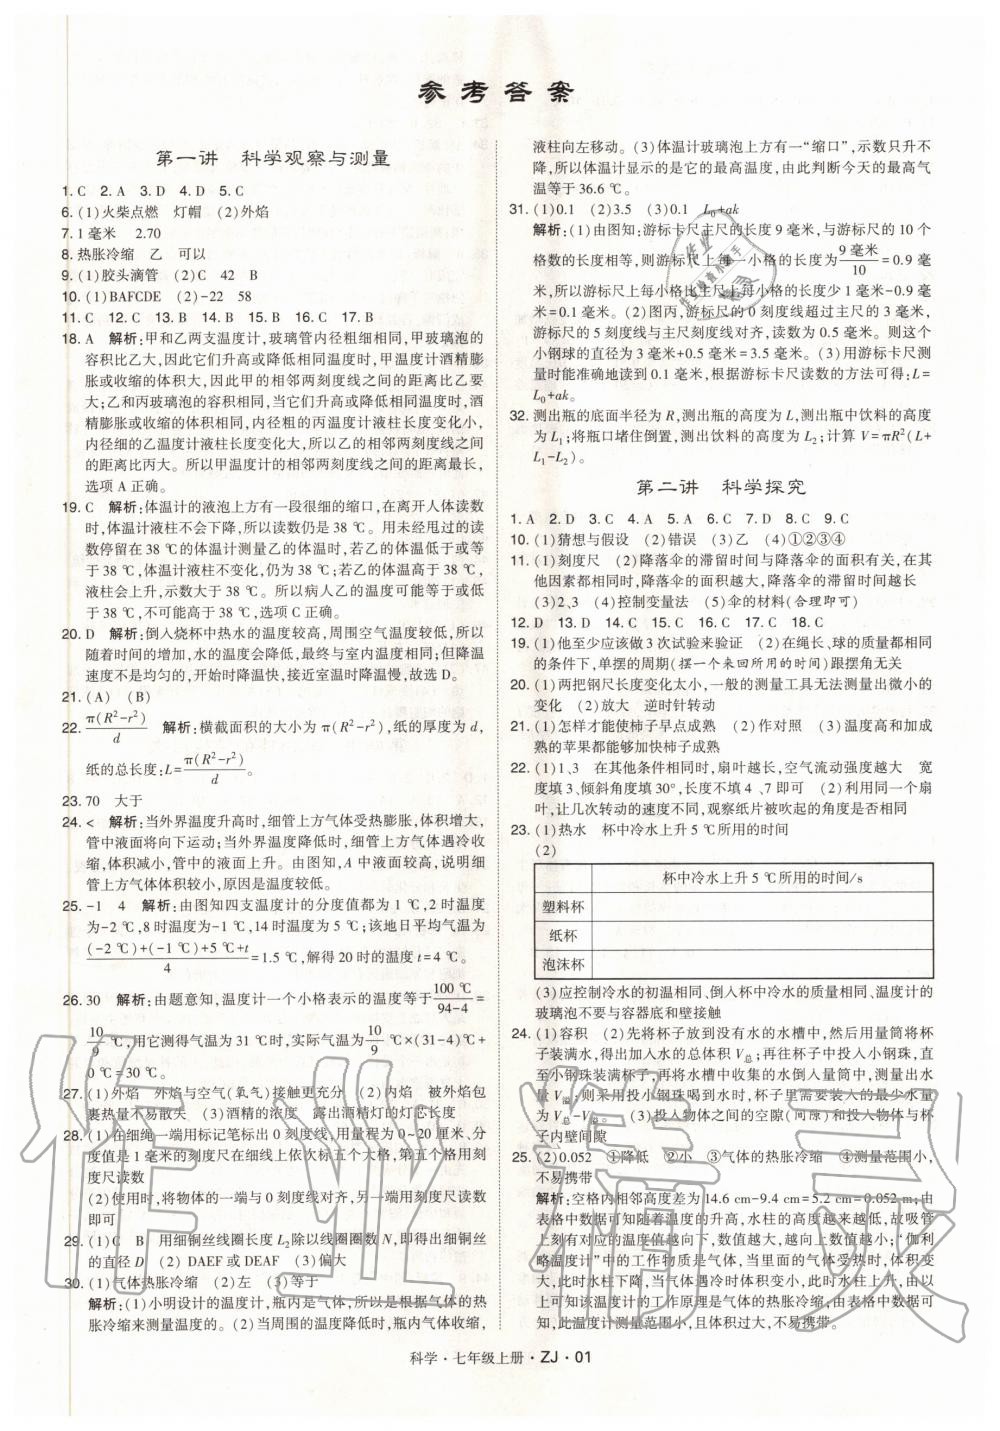 参考答案
第一讲 科学观察与测量
1. C 2. A 3. D 4. D 5. C
6. (1)火柴点燃 灯帽 (2)外焰
7. 1毫米 2.70
8. 热胀冷缩 乙 可以
9. (1)胶头滴管 (2)C 42 B
10. (1)BAFCDE (2)-22 58
11. C 12. C 13. B 14. B 15. B 16. C 17. B
18. A 解析:甲和乙两支温度计,玻璃管内径粗细相同,甲玻璃泡的
容积比乙大,因此它们升高或降低相同温度时,甲温度计酒精膨
胀或收缩的体积大,因此甲的相邻两刻度线之间的距离比乙要
大;乙和丙玻璃泡的容积相同,当它们升高或降低相同温度时,酒
精膨胀或收缩的体积相同,内径粗的丙温度计液柱长度变化小,
内径细的乙温度计液柱长度变化大,所以乙的相邻两刻度线之间
的距离比丙大。所以甲温度计的相邻两刻度线之间的距离最长,
选项A正确。
19. C 解析:体温计的液泡上方有一段很细的缩口,在离开人体读数
时,体温计液柱不会下降,所以读数仍是38 ℃。用未经甩过的读
数停留在38 ℃的体温计测量乙的体温时,若乙的体温低于或等
于38 ℃,体温计液柱不变化,仍为38 ℃;若乙的体温高于38 ℃,
液柱会上升,示数大于38 ℃。所以病人乙的温度可能等于或低
于38 ℃,不可能高于38 ℃,选项C正确。
20. D 解析:倒入烧杯中热水的温度较高,周围空气温度较低,所以
随着时间的增加,水的温度会降低,最终与室内温度相同;但降温
速度不是均匀的,开始时降温快,接近室温时降温慢,故选D。
21. (A) (B)
22. π(R²-r²)/d 解析:横截面积的大小为π(R²-r²),纸的厚度为d,
纸的总长度:L=π(R²-r²)/d。
23. 70 大于
24. < 解析:当外界温度升高时,细管上方气体受热膨胀,体积增大,
管中液面将向下运动;当外界温度降低时,细管上方气体遇冷收
缩,体积减小,管中的液面上升。由图知,A中液面较高,说明细
管上方气体体积较小,原因是温度较低。
25. -1 4 解析:由图知四支温度计的分度值都为1 ℃,2时温度
为-2 ℃,8时温度为-1 ℃,14时温度为5 ℃;该地日平均气温为
((-2 ℃)+(-1 ℃)+5 ℃+t)/4=1.5 ℃,解得20时的温度t=4 ℃。
26. 30 解析:由题意知,温度计一个小格表示的温度等于100 ℃/(94-4)=
10/9 ℃,用它测得气温为31 ℃时,实际气温为10/9 ℃×(31-4)℃+
0 ℃=30 ℃。
27. (1)外焰 外焰与空气(氧气)接触更充分 (2)内焰 被外焰包
裹热量不易散失 (3)酒精的浓度 露出酒精灯的灯芯长度
28. (1)在细绳一端用标记笔标出0刻度线,用量程为0~20厘米、分
度值是1毫米的刻度尺在细线上依次标五个大格,第五个格用刻
度尺读数
(2)使用时,将物体的一端与0刻度线对齐,大格用刻度尺读数
即可
29. (1)C B 用细铜丝线圈长度L₂除以线圈圈数N,即得出细铜丝
的直径D (2)DAEF或DEAF (3)偏大
30. (1)气体热胀冷缩 (2)左 (3)等于
解析:(1)小明设计的温度计,瓶内是气体,所以是根据气体的热
胀冷缩来测量温度的。(2)当周围的温度降低时,瓶内气体收缩,
液柱向左移动。(3)体温计玻璃泡上方有一“缩口”,示数只升不
降,所以体温计显示的是它的最高温度,由此判断今天的最高气
温等于36.6 ℃。
31. (1)0.1 (2)3.5 (3)0.1 L₀+ak
解析:(1)由图知:游标卡尺主尺的长度9毫米,与游标尺的10个
格数的长度相等,则游标尺上每一小格的长度为9毫米/10=0.9毫
米,所以游标尺上每小格比主尺上每小格的长度少1毫米-0.9毫
米=0.1毫米。(2)图丙,游标尺的0刻度线超过主尺的3毫米,
游标尺的5刻度线与主尺刻度线对齐,读数为0.5毫米。所以这个
小钢球的直径为3毫米+0.5毫米=3.5毫米。(3)用游标卡尺测
量时能准确地读到0.1毫米,根据游标卡尺读数的方法可得:L=
L₀+ak。
32. 测出瓶的底面半径为R,测出瓶的高度为L,测出瓶中饮料的高度
为L₁;将瓶口堵住倒置,测出饮料的高度为L₂;计算V=πR²(L+
L₁-L₂)。
第二讲 科学探究
1. A 2. D 3. C 4. A 5. A 6. C 7. D 8. C 9. C
10. (1)猜想与假设 (2)错误 (3)乙 (4)①②③④
11. (1)刻度尺 (2)降落伞的滞留时间与降落伞的面积有关,在其
他因素都相同时,降落伞的面积越大,降落伞的滞留时间越长
(3)2、3 (4)控制变量法 (5)伞的材料(合理即可)
12. D 13. D 14. C 15. C 16. C 17. C 18. C
19. (1)他至少应该做3次试验来验证 (2)在绳长、球的质量都相同
的条件下,单摆的周期(摆一个来回所用的时间)跟摆角无关
20. (1)两把钢尺长度变化太小,一般的测量工具无法测量出微小的
变化 (2)放大 逆时针转动
21. (1)怎样才能使柿子早点成熟 (2)作对照 (3)温度高和加成
熟的苹果都能够加快柿子成熟
22. (1)1、3 在其他条件相同时,扇叶越长,空气流动强度越大 宽
度填3、倾斜角度填30°,长度不填4、7即可 (2)利用同一个扇
叶,让几次转动的速度不同,观察纸片被吹起的角度是否相同
23. (1)热水 杯中冷水上升5 ℃所用的时间
(2)
杯中冷水上升5 ℃所用的时间/s
塑料杯
纸杯
泡沫杯
(3)应控制冷水的初温相同、倒入杯中冷水的质量相同、温度计的
玻璃泡不要与容器底和壁接触
24. (1)容积 (2)先将杯子放到没有水的水槽中,然后用量筒将杯
子装满水,得出加入水的总体积V总;再往杯子中投入小钢珠,直
至小钢珠装满杯子,将水槽中收集的水倒入量筒中,测量出水
量V溢;则采用投小钢珠喝到水时,杯子里需要装入的最少水量
为V总-V溢。 (3)投入物体之间的空隙(间隙)和投入物体与杯
子内壁间隙
25. (2)0.052 ①降低 ②小 ③气体的热胀冷缩 ④测量范围小,
不易携带
解析:空格内相邻高度差为14.6 cm-9.4 cm=5.2 cm=0.052 m;由
表格中数据可知随着温度的升高,水柱的高度越来越低,故吸管
上刻有对应的温度值越向下,数值越大,越向上数值越小;“伽利
略温度计”中的工作物质是气体,当里面的气体受热时,体积变
大,水柱下降,当气体遇冷时体积变小,水柱上升,由此可知,以上
温度计的工作原理是气体的热胀冷缩;由表格中数据可
知,此温度计测量范围太小,并且体积较大,不易携带。
科学·七年级上册·ZJ·01
作业精灵